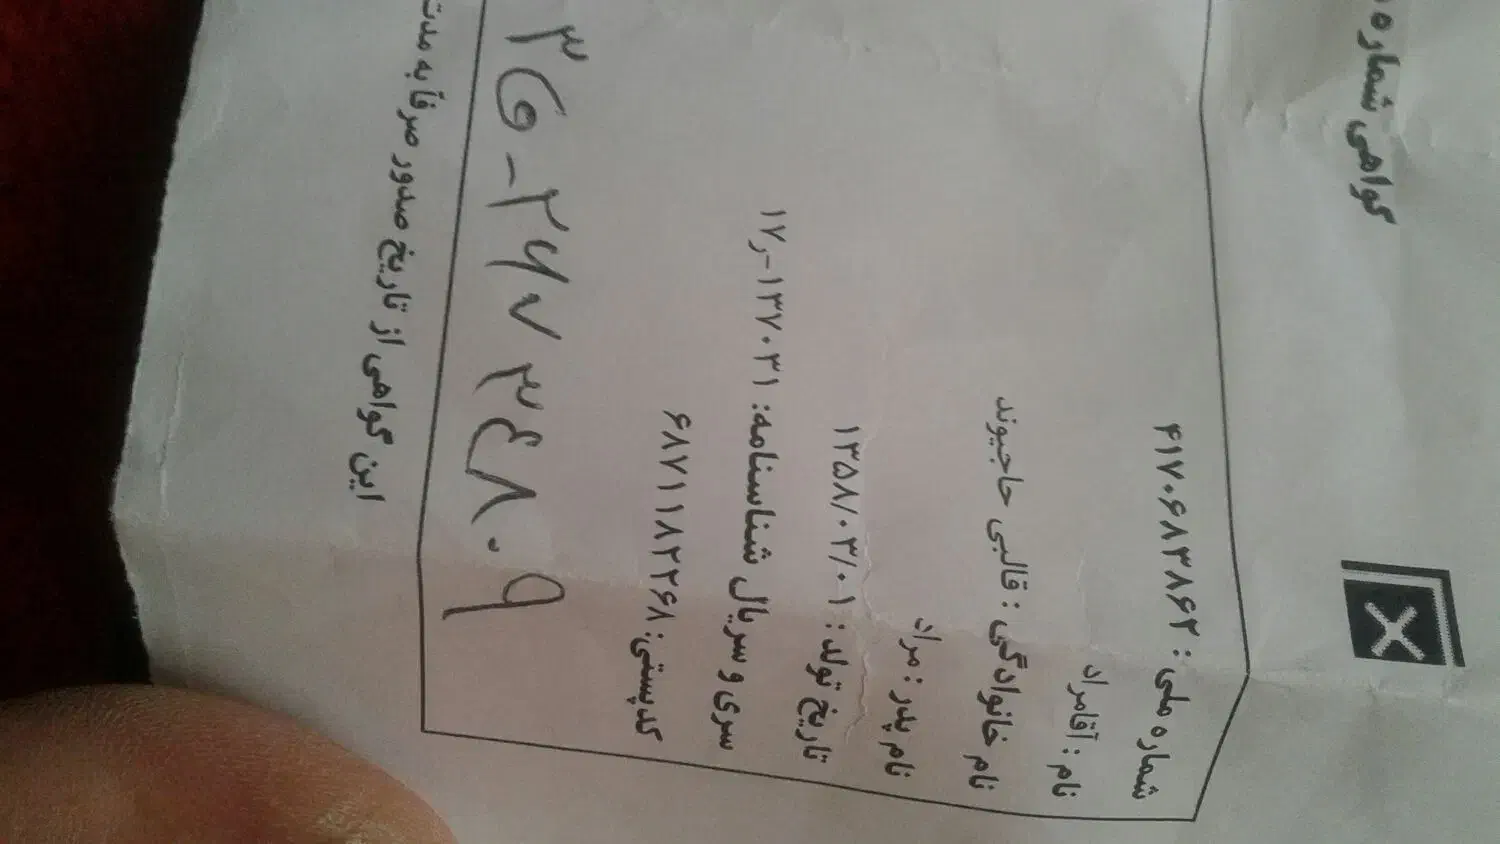 گواهی شماره
شماره ملی : ۴۱۷۰۶۸۳۸۶۲
نام : آقامراد
نام خانوادگی : قالبی حاجیوند
نام پدر : مراد
تاریخ تولد : ۱۳۵۸/۰۳/۰۱
سری و سریال شناسنامه: ۱۳۷۰۳۱-ر۱۷
کدپستی: ۶۸۷۱۱۸۲۲۶۸
۳۵-۲۶۷۳۴۸۰۹
این گواهی از تاریخ صدور صرفاً به مدت